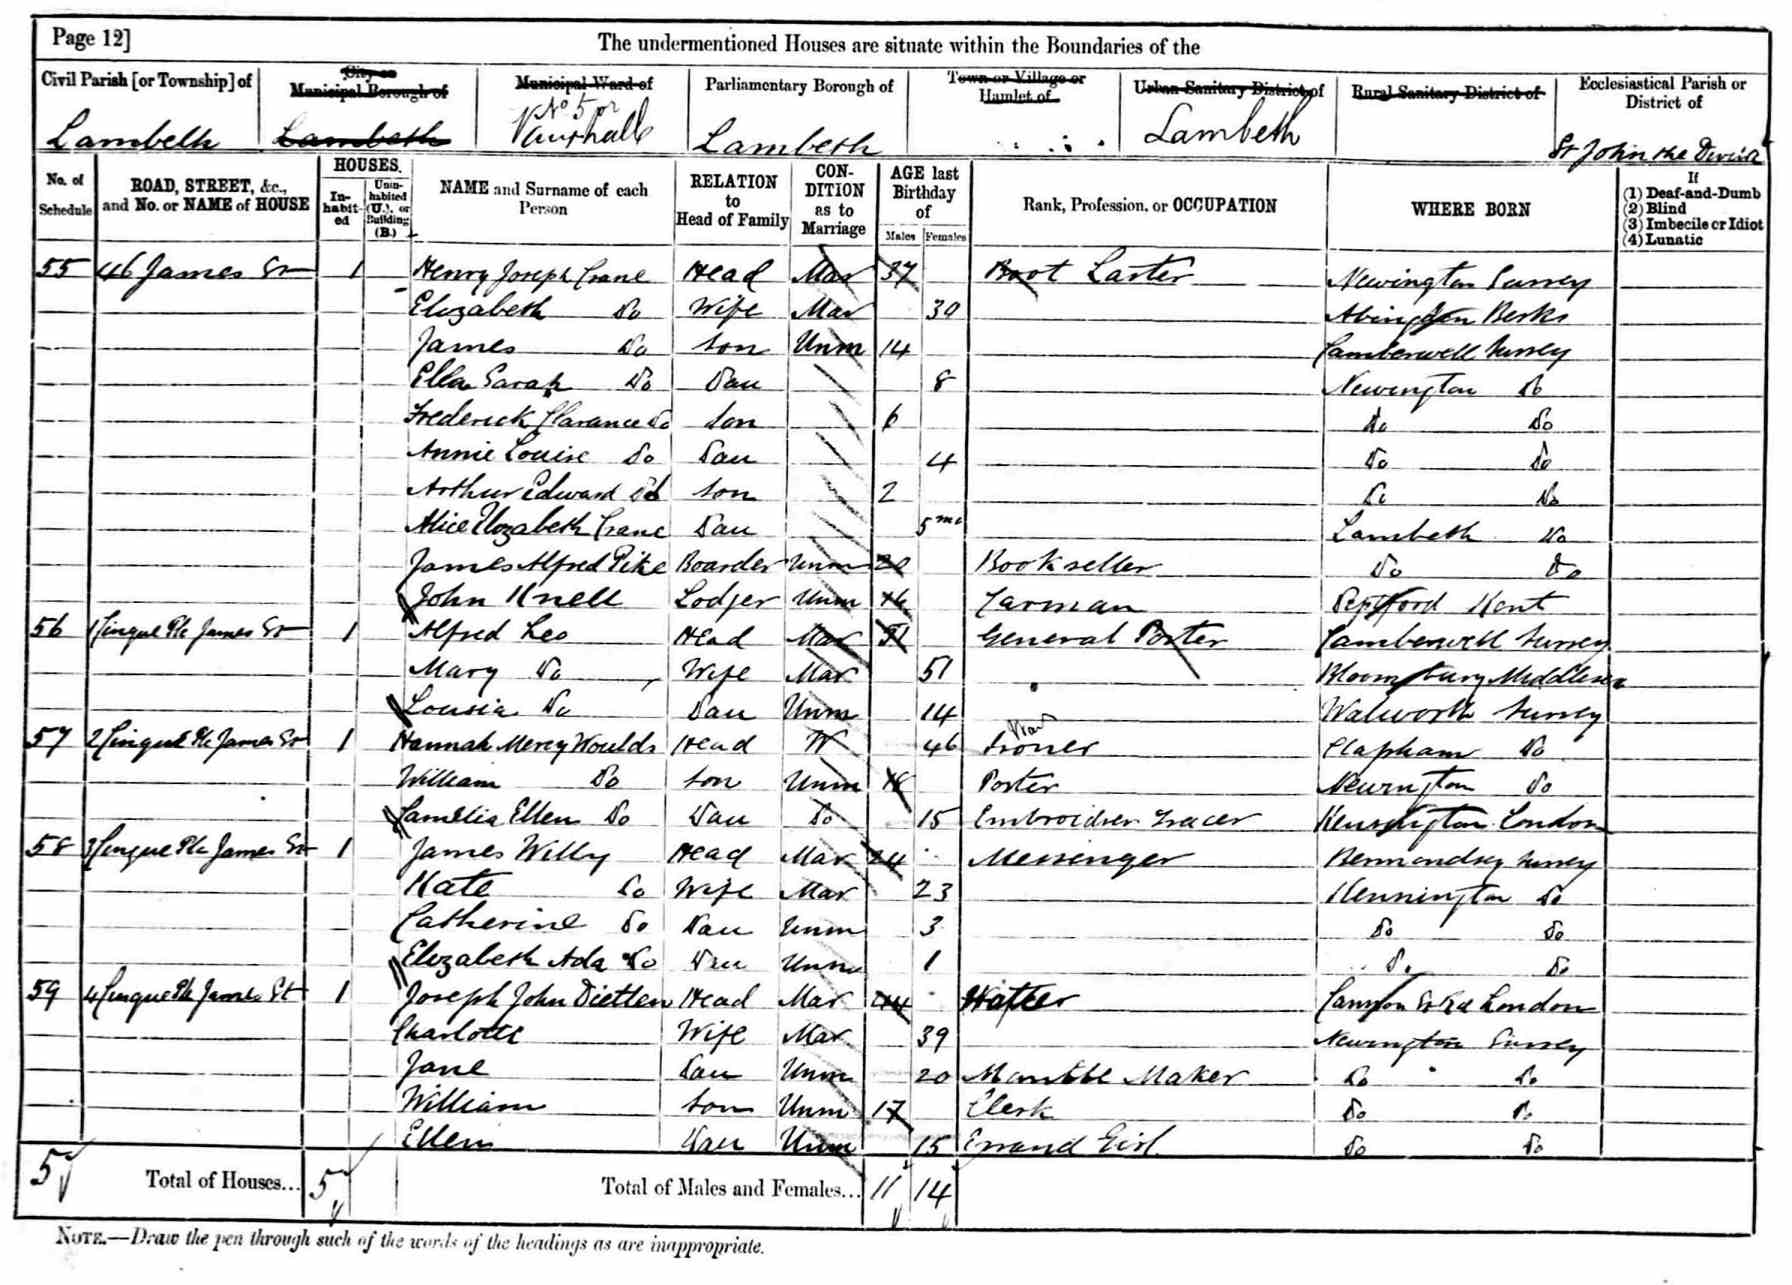 Page 12]
The undermentioned Houses are situate within the Boundaries of the
Civil Parish [or Township] of City or Municipal Borough of Municipal Ward of Parliamentary Borough of Town or Village or Hamlet of Urban Sanitary District of Rural Sanitary District of Ecclesiastical Parish or District of
Lambeth Lambeth No 5 or Vauxhall Lambeth Lambeth St John the Divine
No. of Schedule ROAD, STREET, &c., and No. or NAME of HOUSE HOUSES. In-habit-ed Unin-habited (U.), or Building (B.) NAME and Surname of each Person RELATION to Head of Family CON-DITION as to Marriage AGE last Birthday of Males Females Rank, Profession, or OCCUPATION WHERE BORN If (1) Deaf-and-Dumb (2) Blind (3) Imbecile or Idiot (4) Lunatic
55 46 James St 1 Henry Joseph Crane Head Mar 37 Boot Laster Newington Surrey
Elizabeth Do Wife Mar 30 Abingdon Berks
James Do Son Unm 14 Camberwell Surrey
Ella Sarah Do Dau 8 Newington Do
Frederick Clarance Do Son 6 Do Do
Annie Louise Do Dau 4 Do Do
Arthur Edward Do Son 2 Do Do
Alice Elizabeth Crane Dau 5 mo Lambeth Do
James Alfred Pike Boarder Unm 20 Bookseller Do Do
John Knell Lodger Unm 16 Carman Deptford Kent
56 1 Cinque Plc James St 1 Alfred Leo Head Mar 51 General Porter Camberwell Surrey
Mary Do Wife Mar 51 Bloomsbury Middlesex
Lousia Do Dau Unm 14 Walworth Surrey
57 2 Cinque Plc James St 1 Hannah Mercy Woulds Head W 46 Ironer Clapham Do
William Do Son Unm 18 Porter Newington Do
Camelia Ellen Do Dau Do 15 Embroidrer Tracer Kensington London
58 3 Cinque Plc James St 1 James Willy Head Mar 24 Messenger Bermondsey Surrey
Kate Do Wife Mar 23 Kennington Do
Catherine Do Dau Unm 3 Do Do
Elizabeth Ada Do Dau Unm 1 Do Do
59 4 Cinque Plc James St 1 Joseph John Dietlen Head Mar 44 London
Charlotte Wife Mar 39 Newington Surrey
Jane Dau Unm 20 Mantle Maker Do Do
William Son Unm 17 Clerk Do Do
Ellen Dau Unm 15 Errand Girl Do Do
5 Total of Houses... 5 Total of Males and Females... 11 14
NOTE.—Draw the pen through such of the words of the headings as are inappropriate.